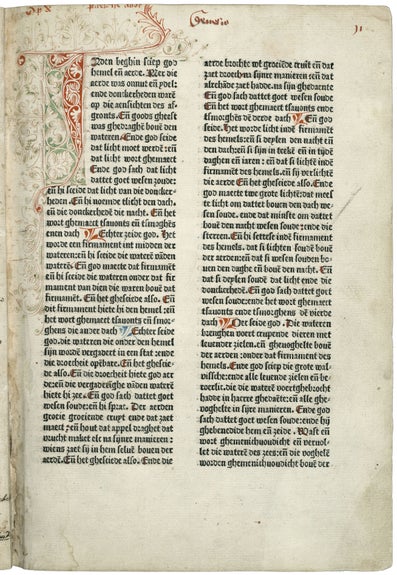 Genesis
Inden beghin sciep god
hemel eñ aerde. Mer die
aerde was onnut eñ ydel:
ende donckerheden warē
op die aensichten des af-
gronts. Eñ goods gheest
was ghedraghē bouē den
wateren. Ende god seide
dat licht moet werdē: eñ
dat licht wort ghemaect
Ende god sach dat licht
dattet goet wesen soude:
eñ hi sceide dat licht van die doncker-
heden. Eñ hi noemde tlicht den dach:
eñ die donckerhede die nacht. Eñ het
wort ghemaect tsauonts eñ smorghēs
enen dach Echter zeide god. Het
worde een firmament int midden der
wateren: eñ hi sceide die waterē vādē
waterē. Eñ god maecte dat firmamēt
eñ hi sceide die wateren onder dat fir
mament van dien die waren bouē dat
firmamēt. Eñ het ghesciede also. Eñ
dit firmament hiete hi den hemel: eñ
het wort ghemaect tsauonts eñ smor-
ghens die ander dach Echter seide
god. die wateren die onder den hemel
sijn wordē vergadert in een stat: ende
die droecheit opēbare. Eñ het ghescie-
de also. Eñ die droecheit hiete god aer
de: eñ die vergaderīghe vādē wateren
hiete hi zee. Eñ god sach dattet goet
wesen soude: eñ hi sprac. Der aerden
groeie groeiende cruyt ende dat zaet
maect: eñ hout dat appel draghet dat
vrucht maket elc na sijnre manieren:
wiens zaet sij in hem seluē bouen der
aerdē. Eñ het ghesciede also. Ende die
aerde brochte wt groeiēde cruit eñ dat
zaet droech na sijnre manieren: eñ dat
zaet hadde. na sijn ghedaente
Eñ god sach dattet goet wesen soude
Eñ het wort ghemaect tsauonts ende
tsmorghēs dē derde dach Eñ god
seide. Het worde licht indē firmamēt
des hemels: eñ si deylen den nacht eñ
den dach: eñ si sijn in teekē eñ in tijdē
daghen eñ iaren: eñ dat si lichtē indē
firmamēt des hemels. eñ si verlichtē
die aerde. Eñ het ghesciede also. Ende
god maecte twe grote lichtē: dat mees
te licht om dattet bouen den dach we-
sen soude. ende dat minste om dattet
bouē den nacht wesen soude: ende die
sterren. Eñ hi settese indē firmament
des hemels. dat si lichten souden bouē
der aerden: eñ dat si wesen souden bo-
uen den daghe eñ bouē den nacht. Eñ
dat si deylen souden dat licht ende die
donckerhede. Eñ god sach dattet goet
wesen soude: ende het wort ghemaect
tsauonts ende tsmorghens dē vierde
dach Oec seide god. Die wateren
brenghen wort crupende dieren met
leuender zielen. eñ ghevoghelte bouē
der aerden: onder dat firmament des
hemels. Ende god sciep die grote wal-
visschē: ende alle leuende zielen eñ be-
roerlic. die die waterē voertghebrocht
hadde in haerre ghedaēte: eñ alle ghe-
voghelte in sijnre manieren. Ende god
sach dattet goet wesen soude: ende hij
ghebenedide hem eñ zeide. Wast eñ
wort ghemenichvoudicht eñ vervol-
let die waterē des zees: eñ die voghelē
worden ghemenichvoudicht bouē der